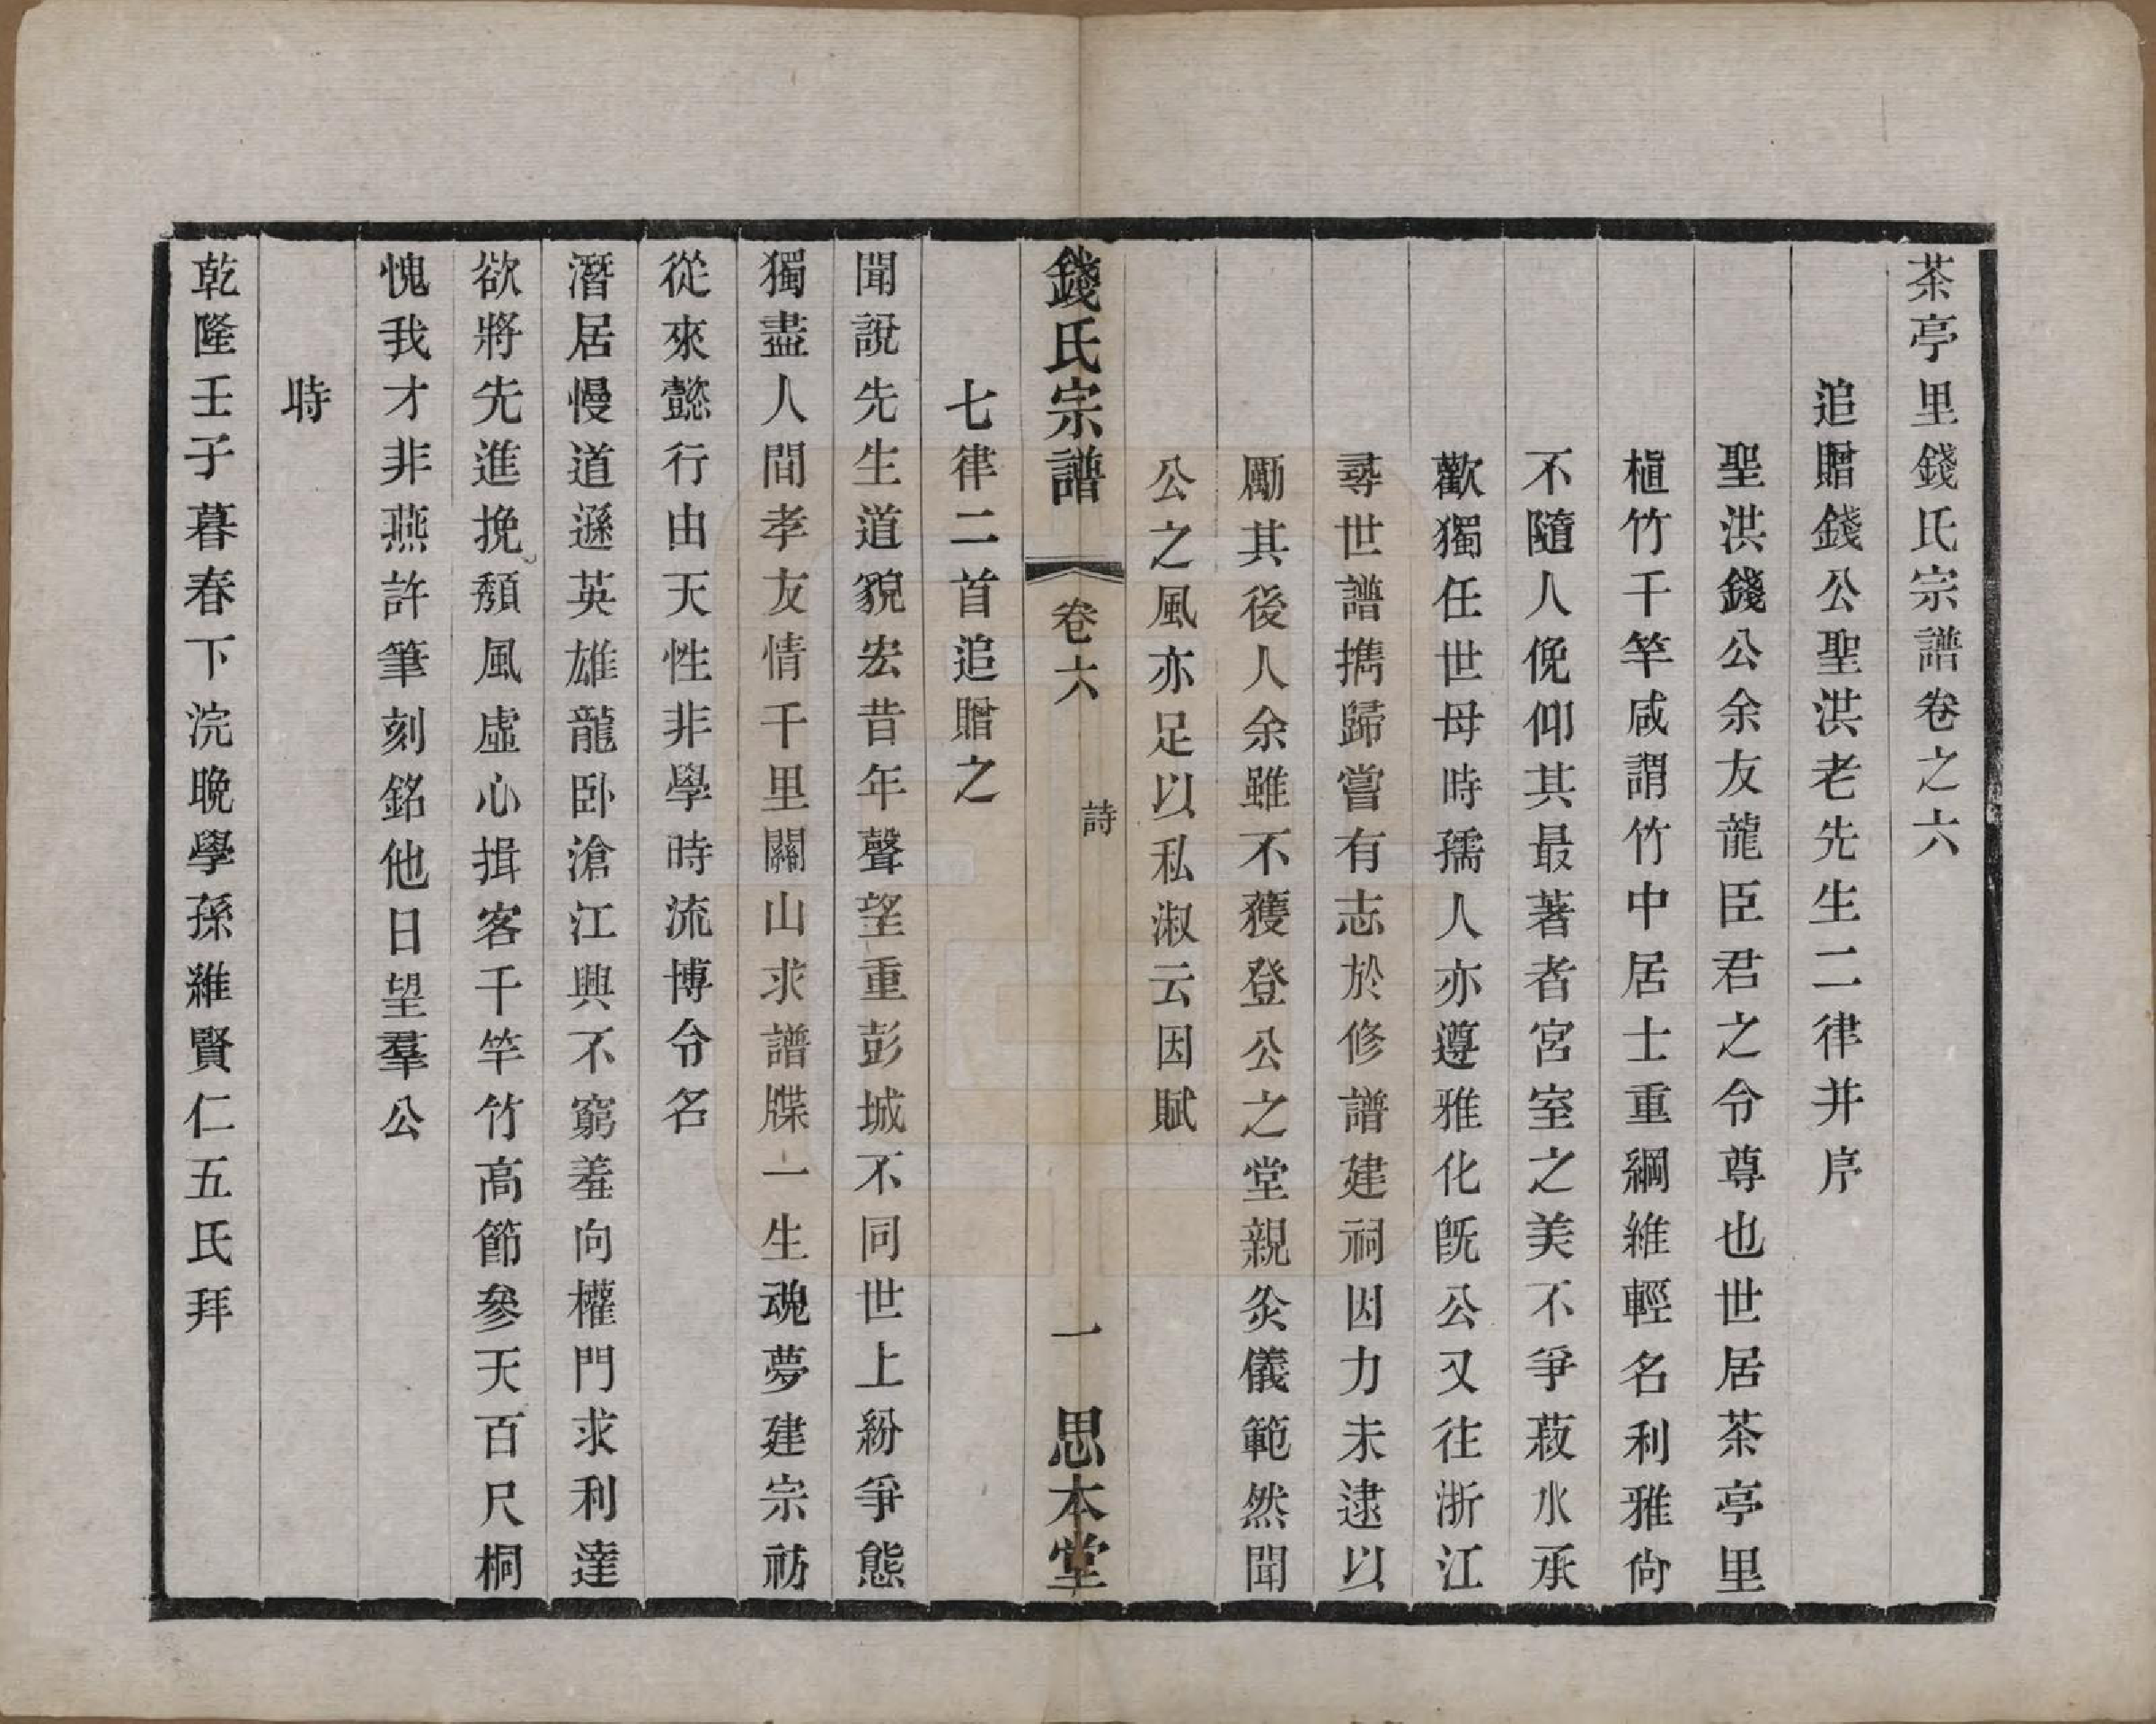 茶亭里錢氏宗譜卷之六
追贈錢公聖洪老先生二律并序
聖洪錢公余友龍臣君之令尊也世居茶亭里
植竹千竿咸謂竹中居士重綱維輕名利雅尙
不隨人俛仰其最著者宮室之美不爭菽水承
歡獨任世母時孺人亦遵雅化旣公又往浙江
尋世譜擕歸嘗有志於修譜建祠因力未逮以
勵其後人余雖不獲登公之堂親灸儀範然聞
公之風亦足以私淑云因賦
錢氏宗譜 卷六 詩 一 思本堂
七律二首追贈之
聞說先生道貌宏昔年聲望重彭城不同世上紛爭態
獨盡人間孝友情千里關山求譜牒一生魂夢建宗祊
從來懿行由天性非學時流博令名
潛居慢道遜英雄龍卧滄江興不窮羞向權門求利達
欲將先進挽頹風虛心揖客千竿竹高節參天百尺桐
愧我才非燕許筆刻銘他日望羣公
時
乾隆壬子暮春下浣晚學孫維賢仁五氏拜